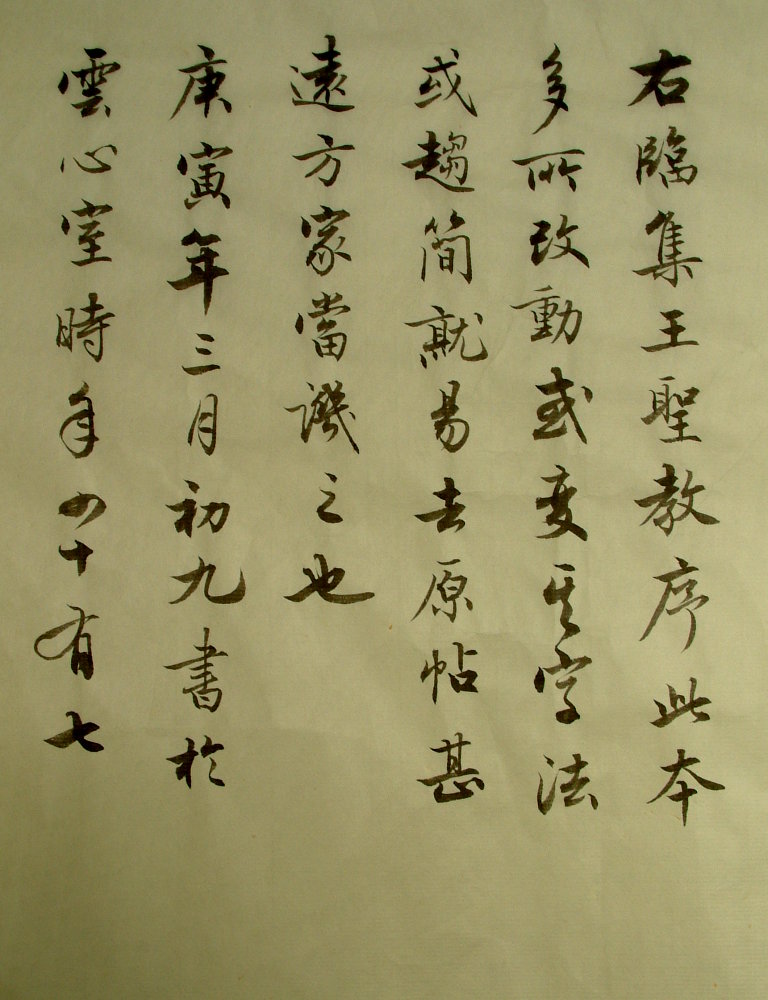 右臨集王聖教序此本
多所改動或變其字法
或趨簡就易去原帖甚
遠方家當譏之也
庚寅年三月初九書於
雲心室時年四十有七